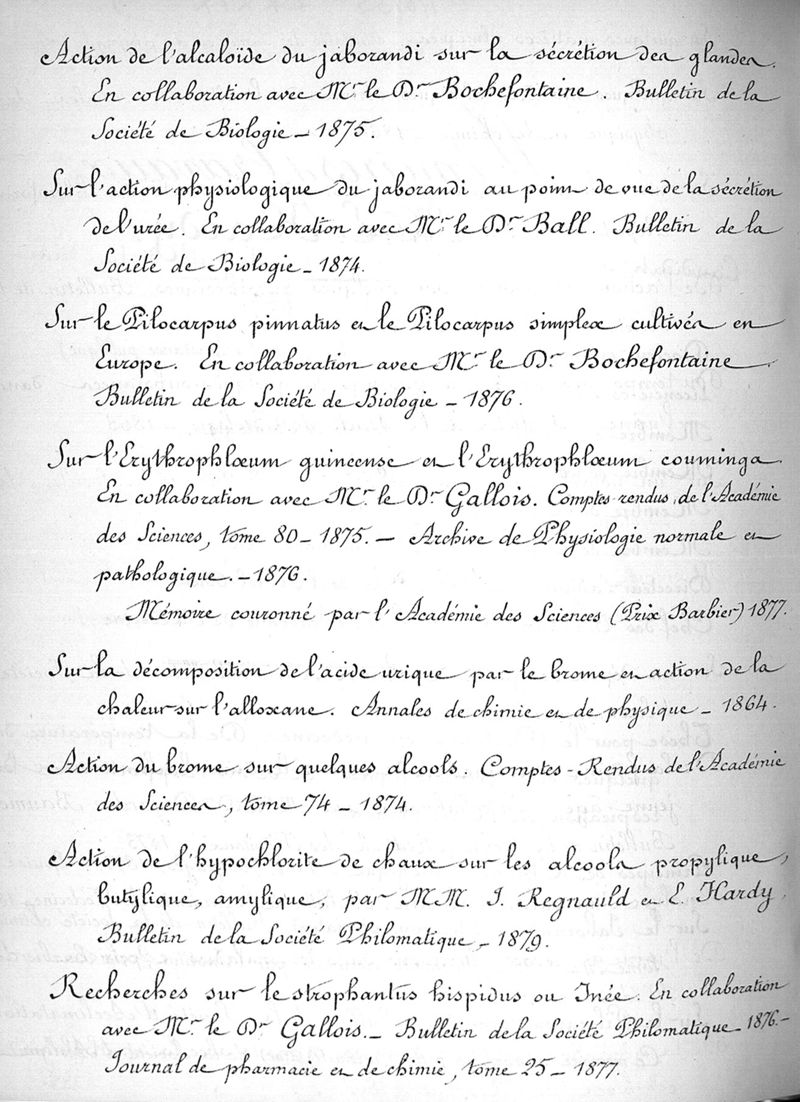 Action de l'alcaloïde du jaborandi sur la sécrétion des glandes.
En collaboration avec Mr le Dr Bochefontaine. Bulletin de la
Société de Biologie _ 1875.
Sur l'action physiologique du jaborandi au point de vue de la sécrétion
de l'urée. En collaboration avec Mr le Dr Ball. Bulletin de la
Société de Biologie _ 1874.
Sur le Pilocarpus pinnatus et le Pilocarpus simplex cultivés en
Europe. En collaboration avec Mr le Dr Bochefontaine.
Bulletin de la Société de Biologie _ 1876.
Sur l'Erythrophlœum guineense et l'Erythrophlœum couminga.
En collaboration avec Mr le Dr Gallois. Comptes-rendus de l'Académie
des Sciences, tome 80 _ 1875. — Archive de Physiologie normale et
pathologique. _ 1876.
Mémoire couronné par l'Académie des Sciences (Prix Barbier) 1877.
Sur la décomposition de l'acide urique par le brome et action de la
chaleur sur l'alloxane. Annales de chimie et de physique _ 1864.
Action du brome sur quelques alcools. Comptes-Rendus de l'Académie
des Sciences, tome 74 _ 1874.
Action de l'hypochlorite de chaux sur les alcools propylique,
butylique, amylique, par MM. J. Regnauld et E. Hardy.
Bulletin de la Société Philomatique _ 1879.
Recherches sur le strophantus hispidus ou Inée. En collaboration
avec Mr le Dr Gallois. _ Bulletin de la Société Philomatique _ 1876. _
Journal de pharmacie et de chimie, tome 25 _ 1877.